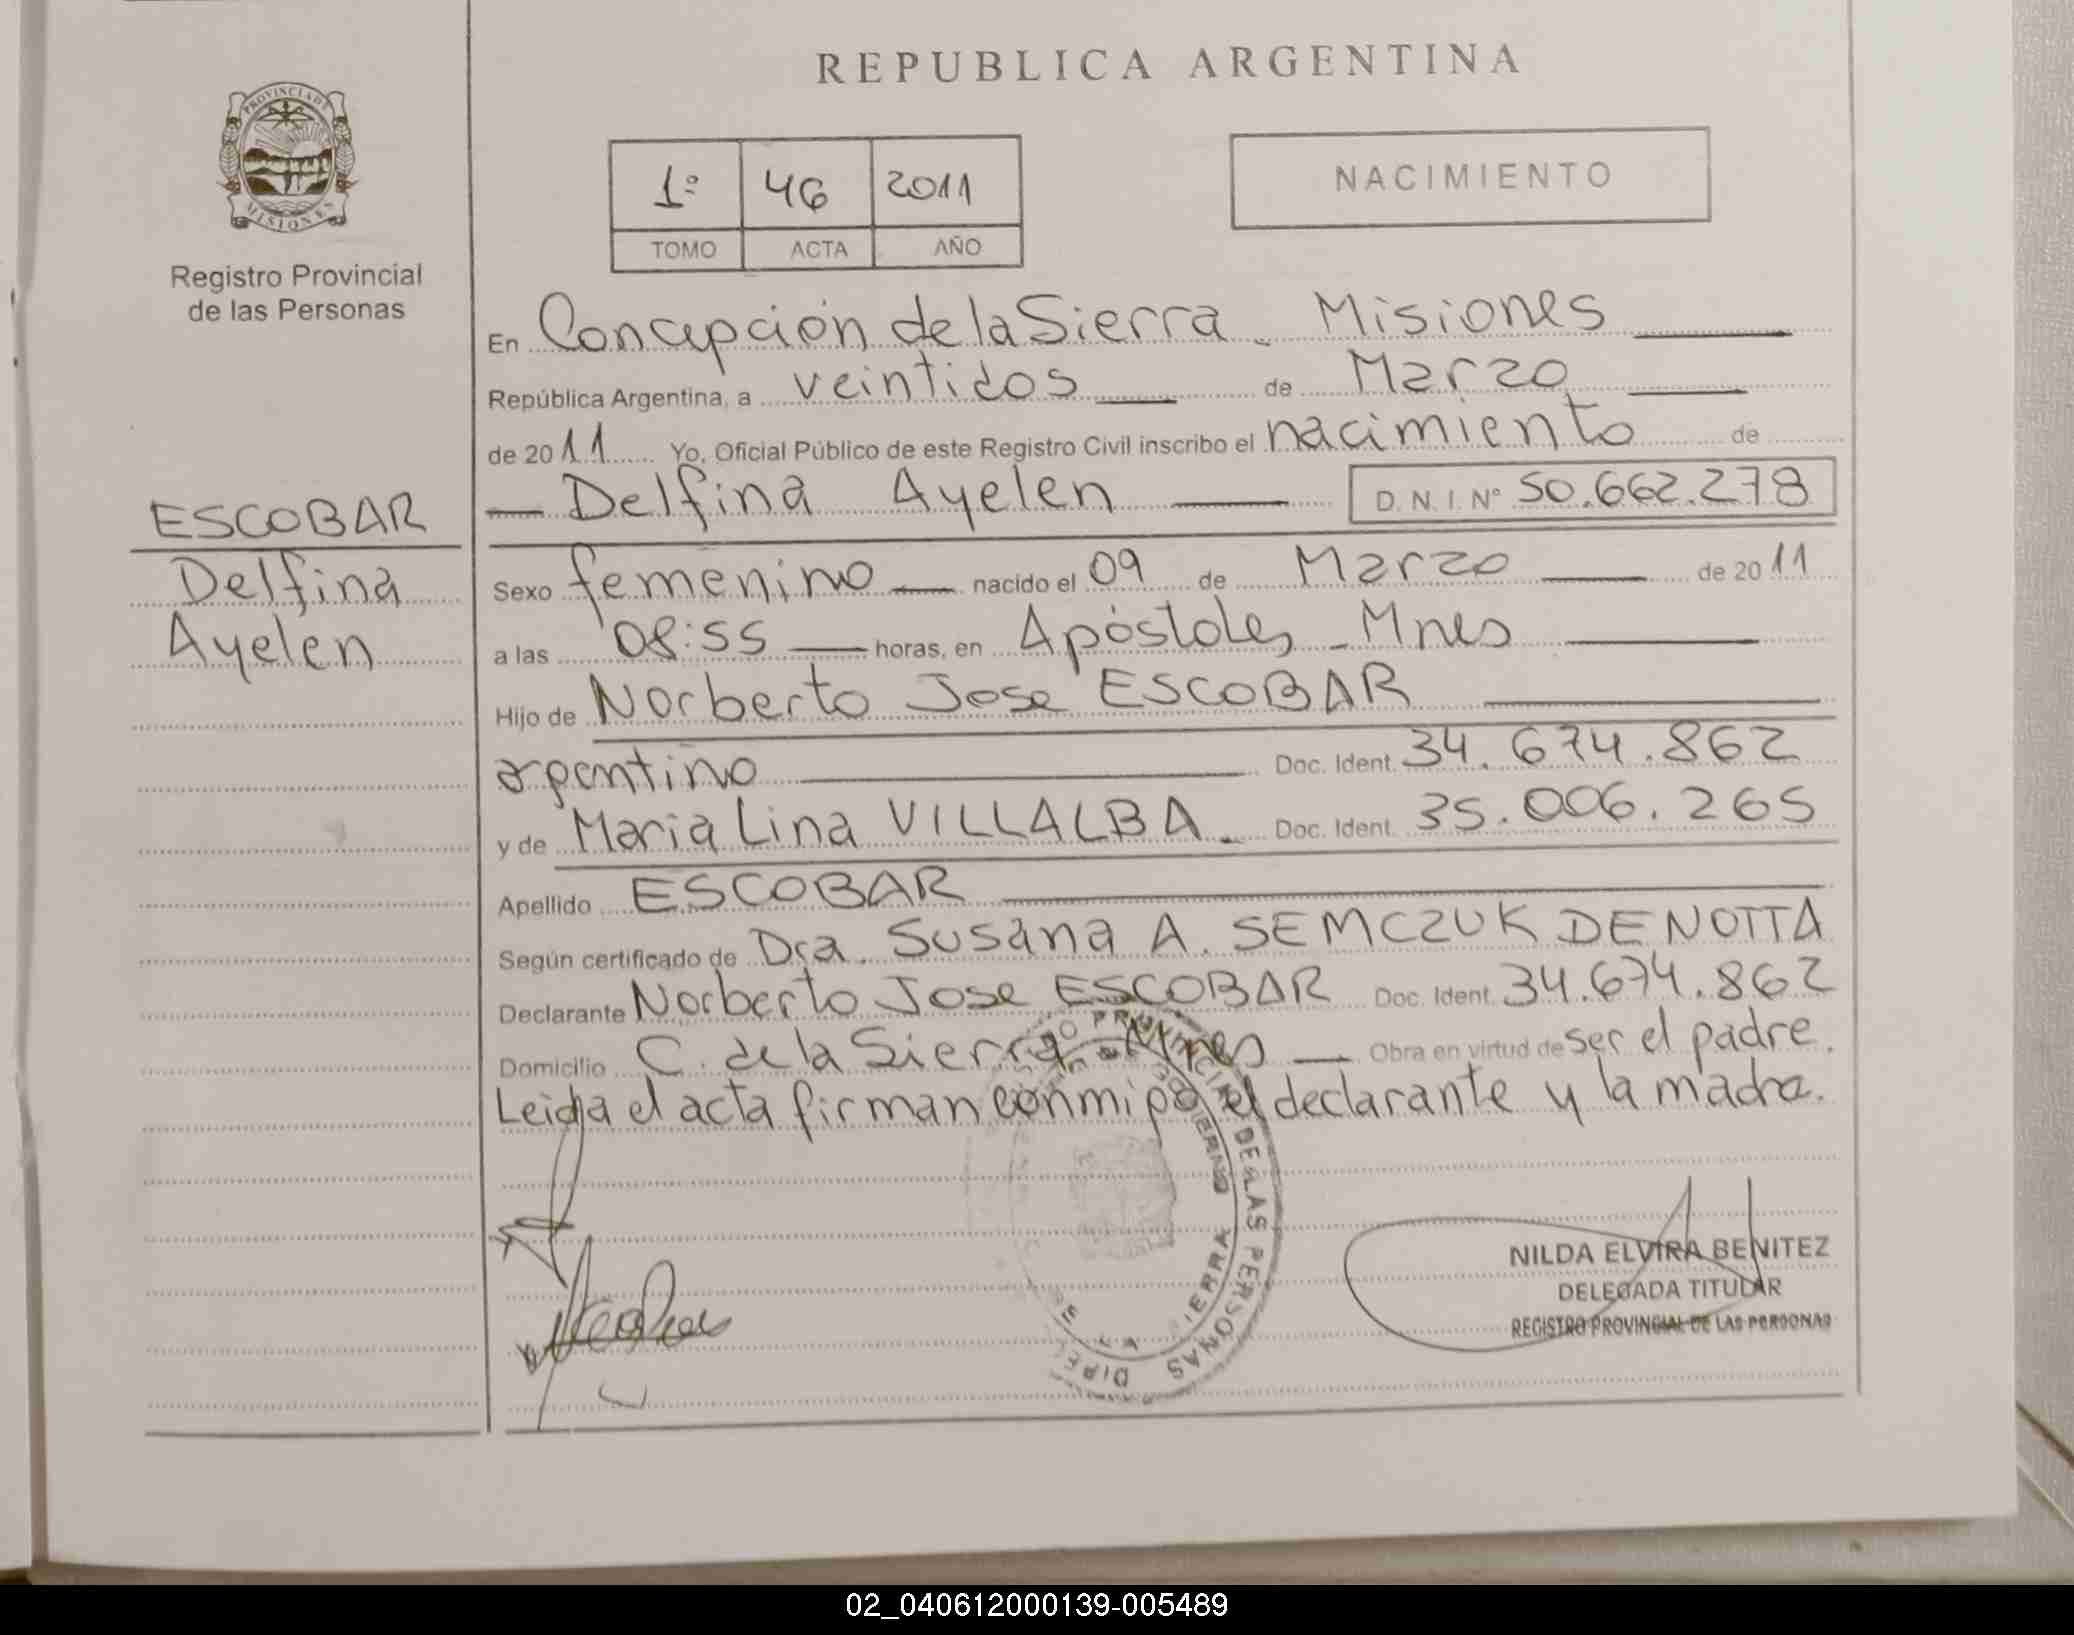 REPUBLICA ARGENTINA
PROVINCIA DE
MISIONES
Registro Provincial
de las Personas
1º 46 2011
TOMO ACTA AÑO
NACIMIENTO
En Concepción de la Sierra - Misiones
República Argentina, a veintidos de Marzo
de 2011 Yo, Oficial Público de este Registro Civil inscribo el nacimiento de
Delfina Ayelen D.N.I. Nº 50.662.278
ESCOBAR
Delfina
Ayelen
Sexo femenino nacido el 09 de Marzo de 2011
a las 08:55 horas, en Apóstoles - Mnes
Hijo de Norberto Jose ESCOBAR
argentino Doc. Ident. 34.674.862
y de Maria Lina VILLALBA - Doc. Ident. 35.006.265
Apellido ESCOBAR
Según certificado de Dra. Susana A. SEMCZUK DE NOTTA
Declarante Norberto Jose ESCOBAR Doc. Ident. 34.674.862
Domicilio C. de la Sierra - Mnes Obra en virtud de ser el padre.
Leida el acta firman conmigo el declarante y la madre.
DE LAS PERSONAS
NILDA ELVIRA BENITEZ
DELEGADA TITULAR
REGISTRO PROVINCIAL DE LAS PERSONAS
02_040612000139-005489